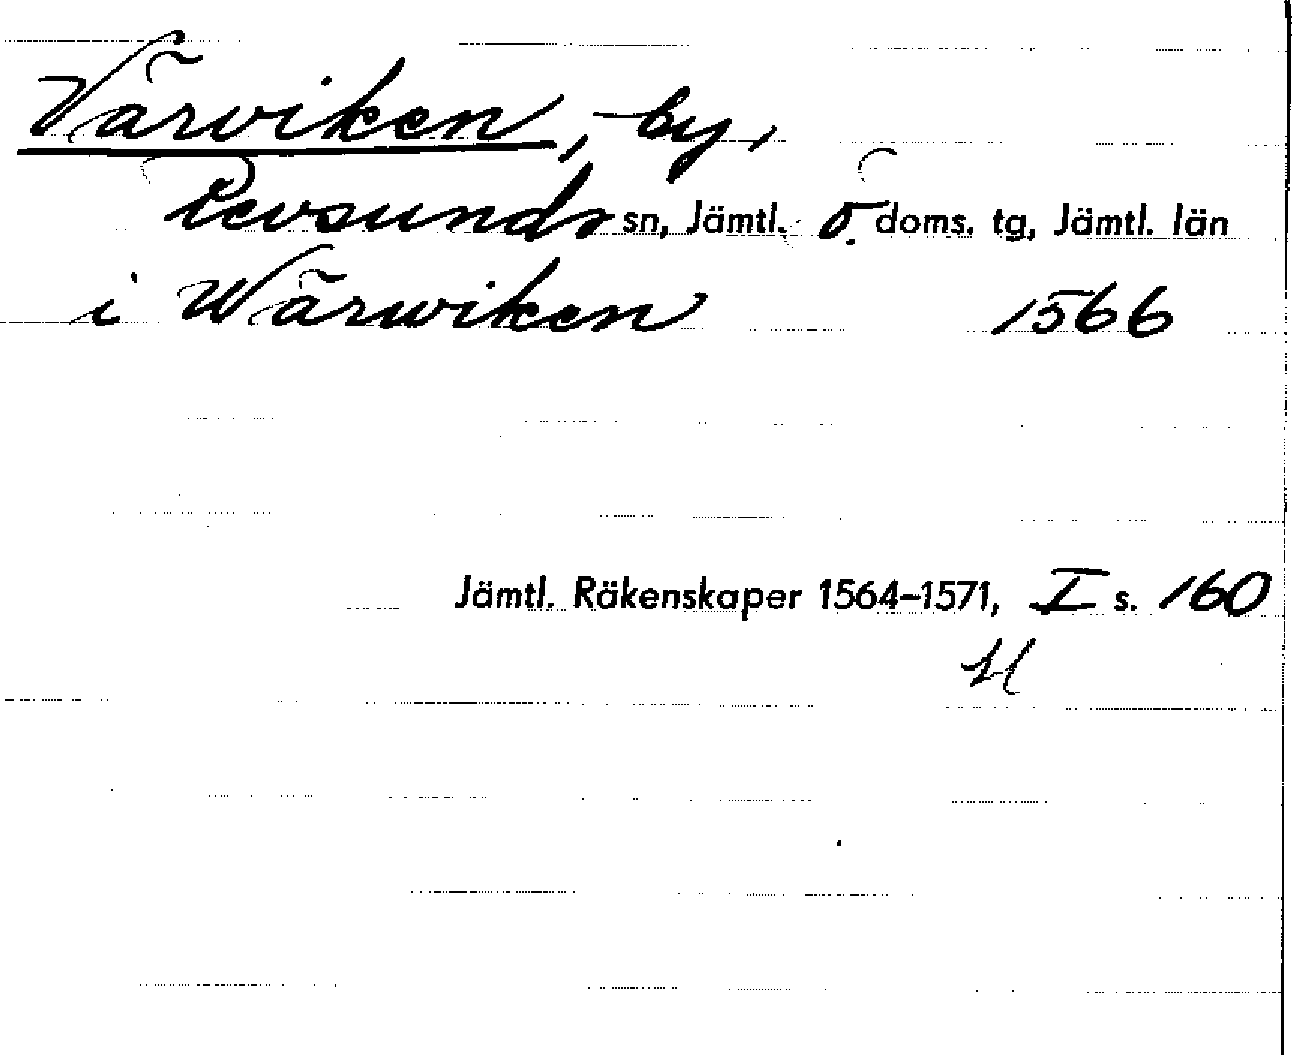 Värviken, by,
Revsunds sn, Jämtl. ö. doms. tg, Jämtl. län
i Wärwiken 1566
Jämtl. Räkenskaper 1564–1571, I s. 160